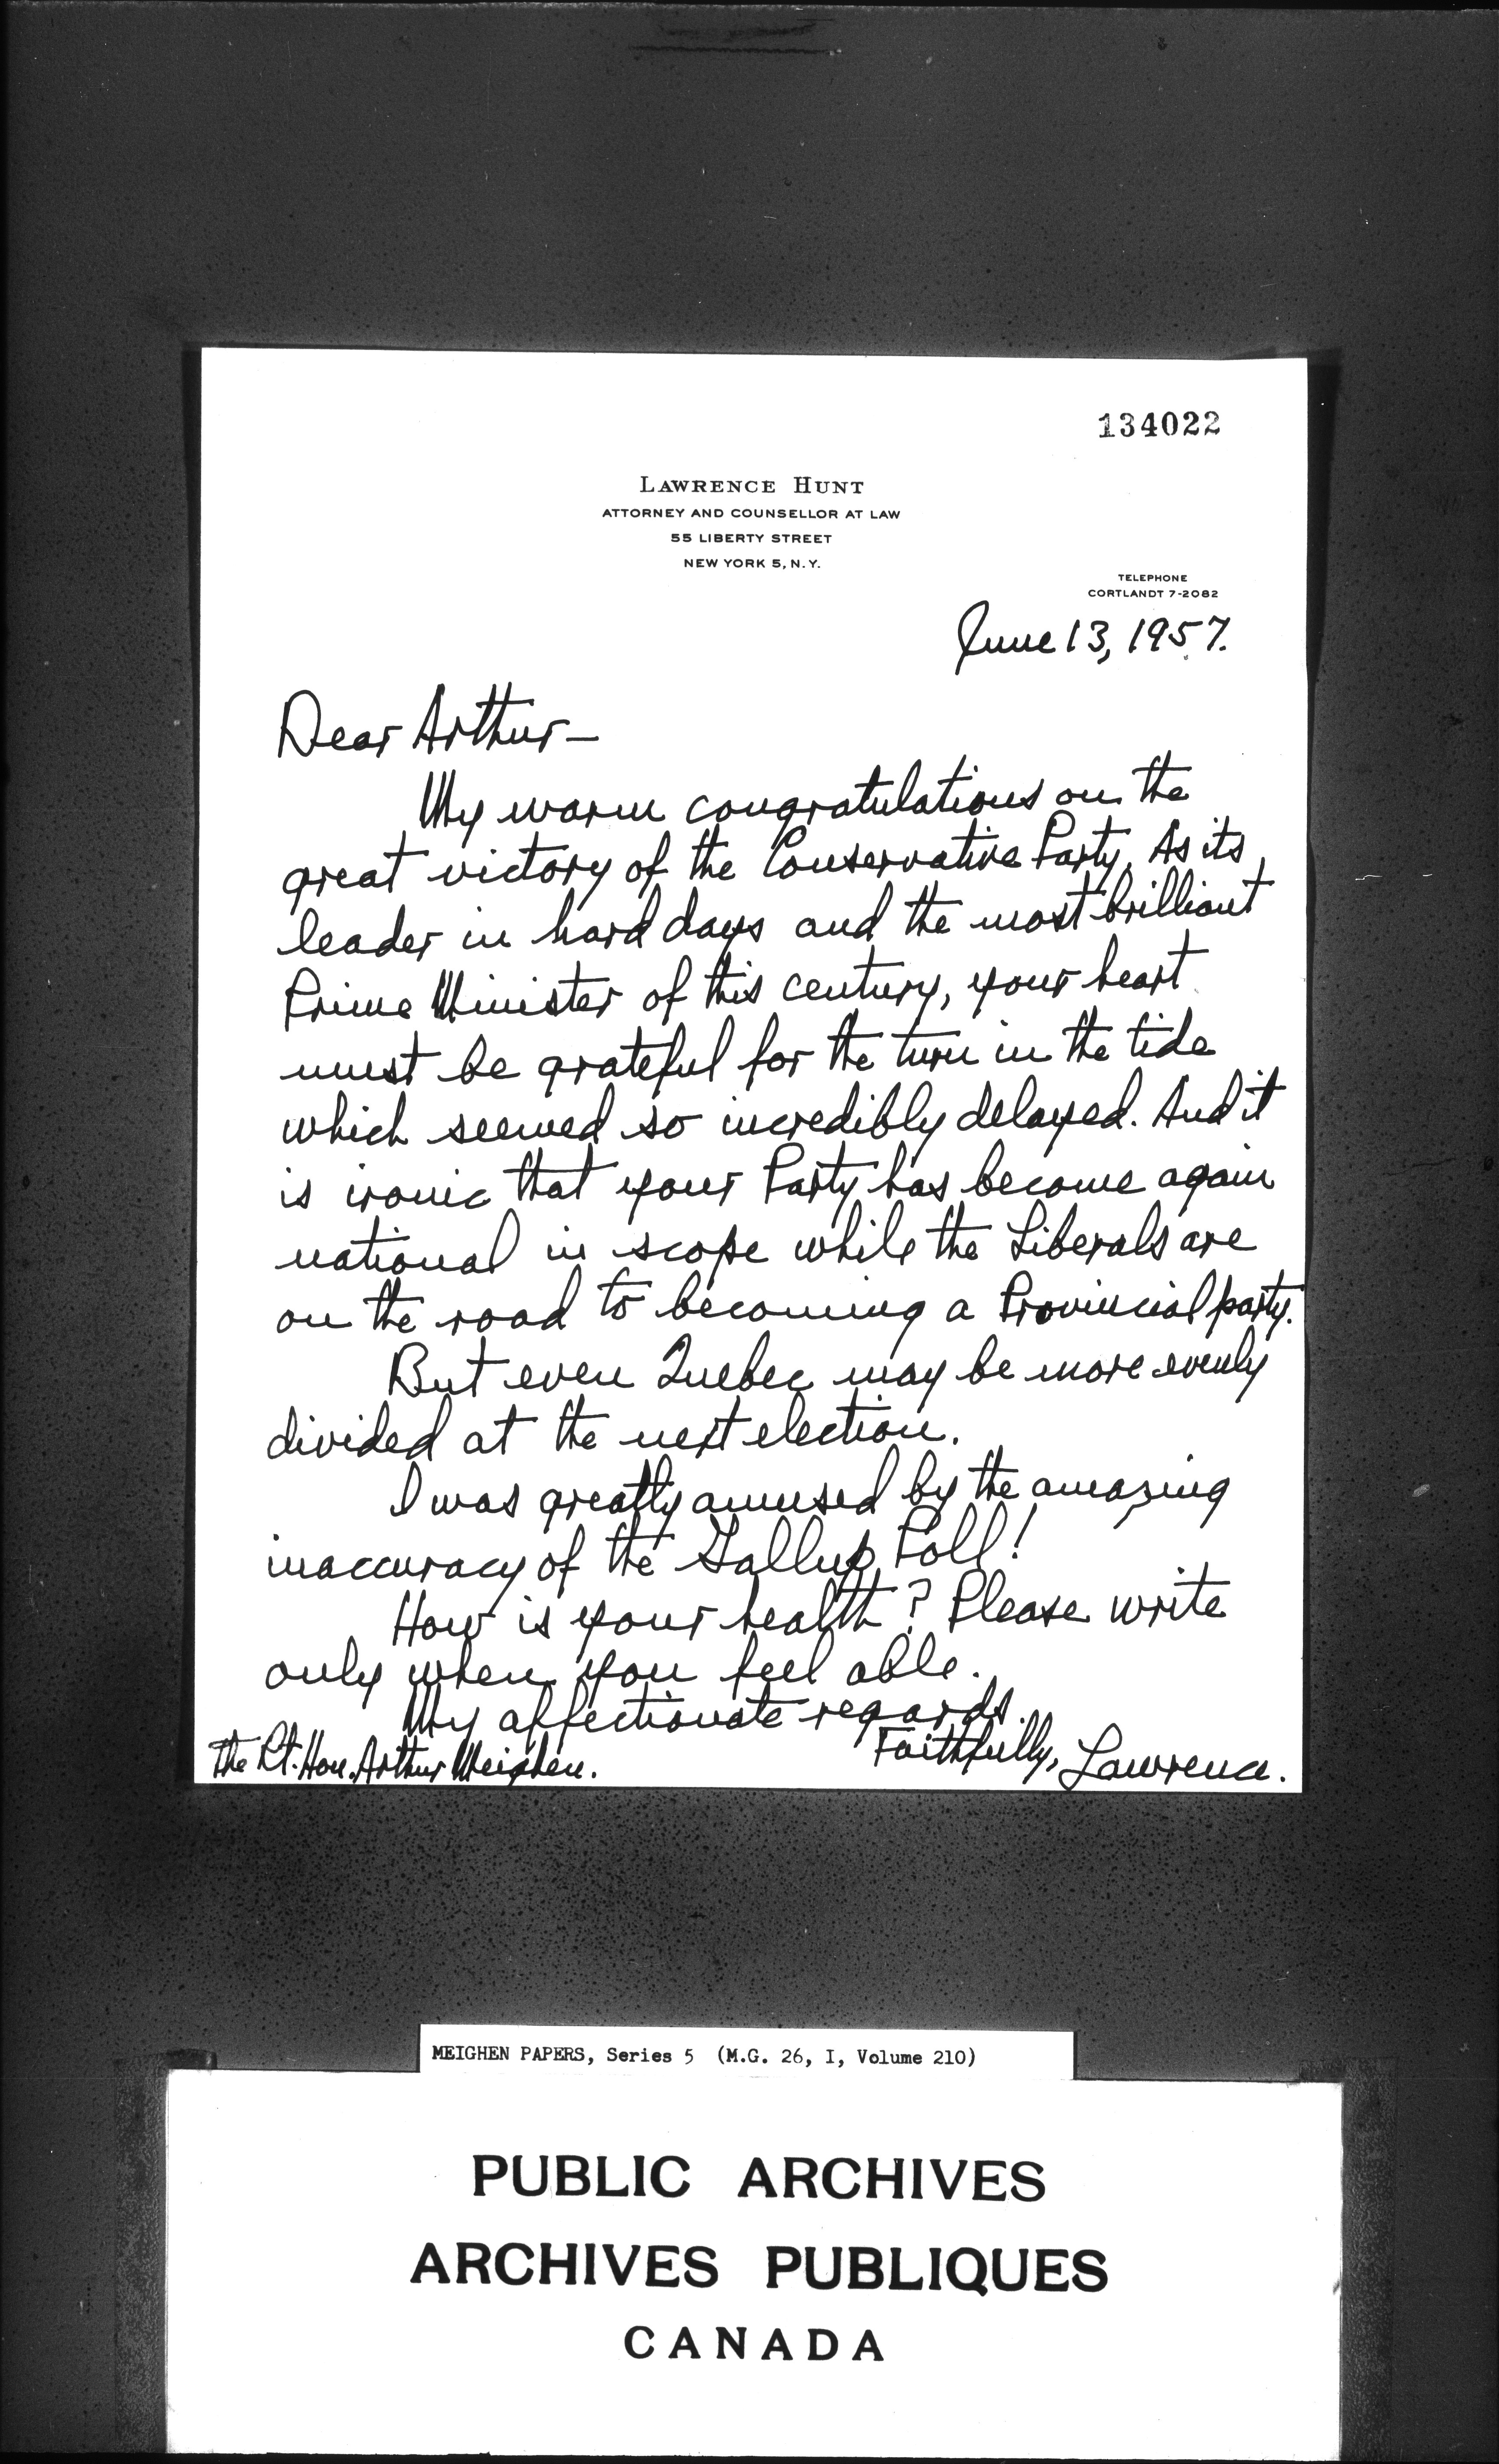 134022
LAWRENCE HUNT
ATTORNEY AND COUNSELLOR AT LAW
55 LIBERTY STREET
NEW YORK 5, N.Y.
TELEPHONE
CORTLANDT 7-2082
June 13, 1957.
Dear Arthur—
My warm congratulations on the
great victory of the Conservative Party. As its
leader in hard days and the most brilliant
Prime Minister of this century, your heart
must be grateful for the turn in the tide
which seemed so incredibly delayed. And it
is ironic that your Party has become again
national in scope while the Liberals are
on the road to becoming a Provincial party.
But even Quebec may be more evenly
divided at the next election.
I was greatly amused by the amazing
inaccuracy of the Gallup Poll!
How is your health? Please write
only when you feel able.
My affectionate regards.
Faithfully, Lawrence.
The Rt. Hon. Arthur Meighen.
MEIGHEN PAPERS, Series 5 (M.G. 26, I, Volume 210)
PUBLIC ARCHIVES
ARCHIVES PUBLIQUES
CANADA